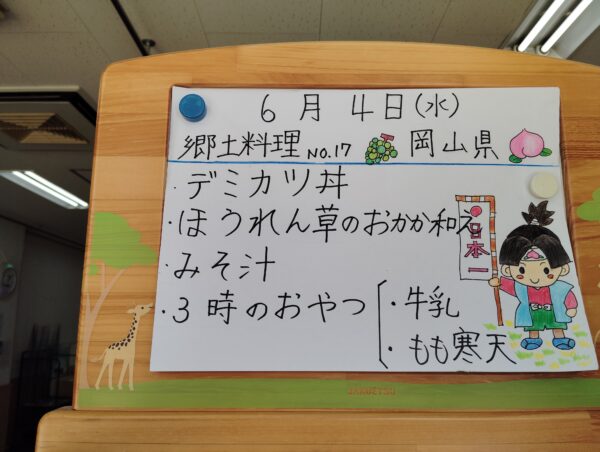 6月4日(水)
郷土料理 NO.17 岡山県
・デミカツ丼
・ほうれん草のおかか和え
・みそ汁
・3時のおやつ ・牛乳
・もも寒天
日本一
JAKUETSU